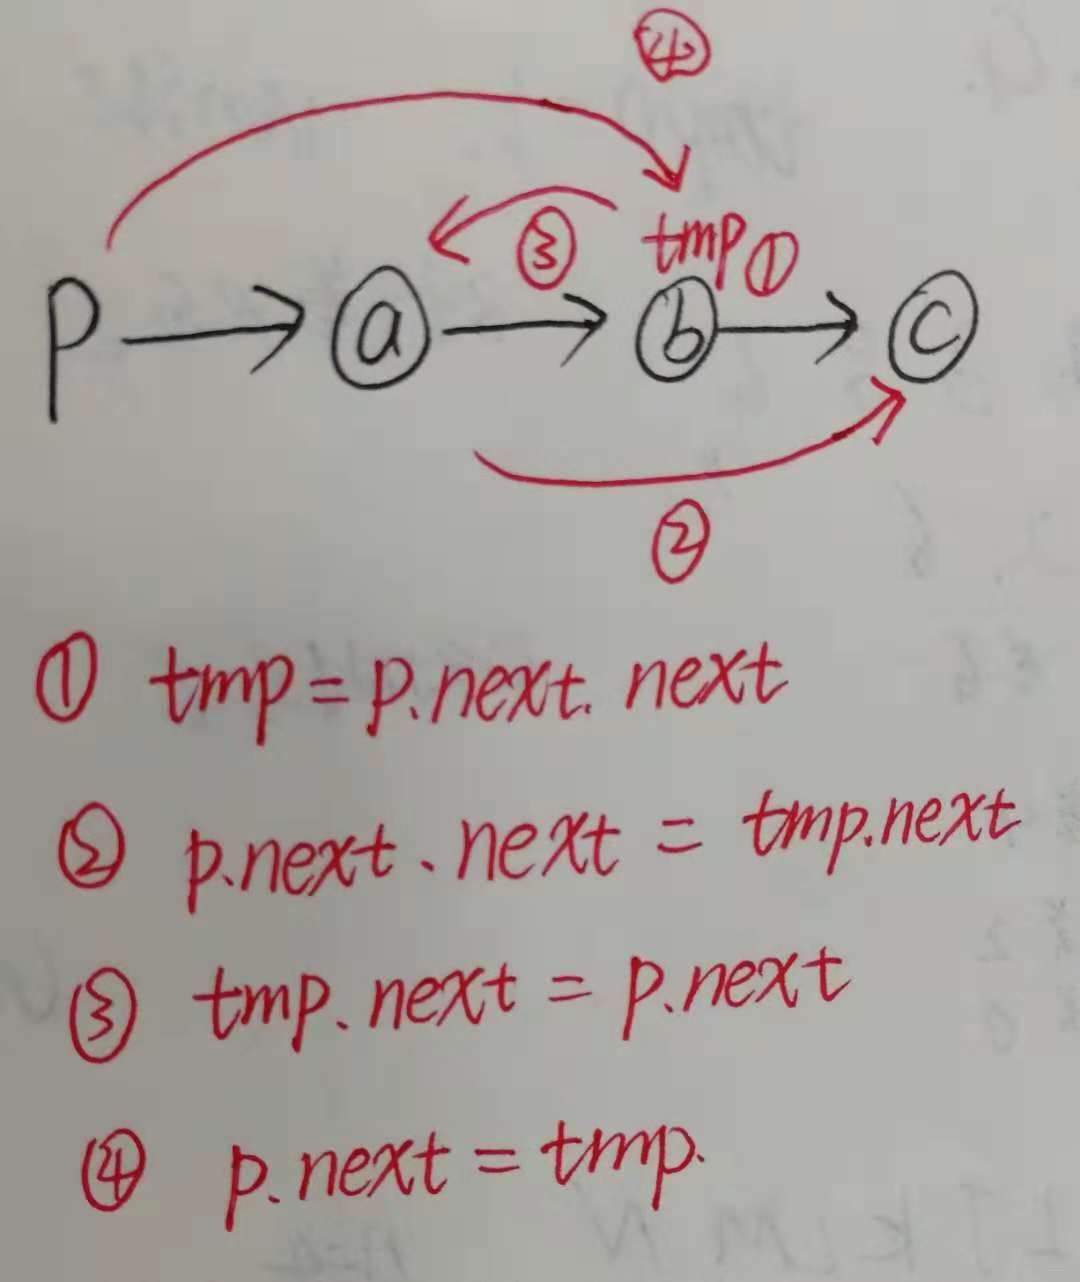 ④
③ tmp ①
p a b c
②
① tmp = p.next. next
② p.next . next = tmp.next
③ tmp. next = p.next
④ p. next = tmp.